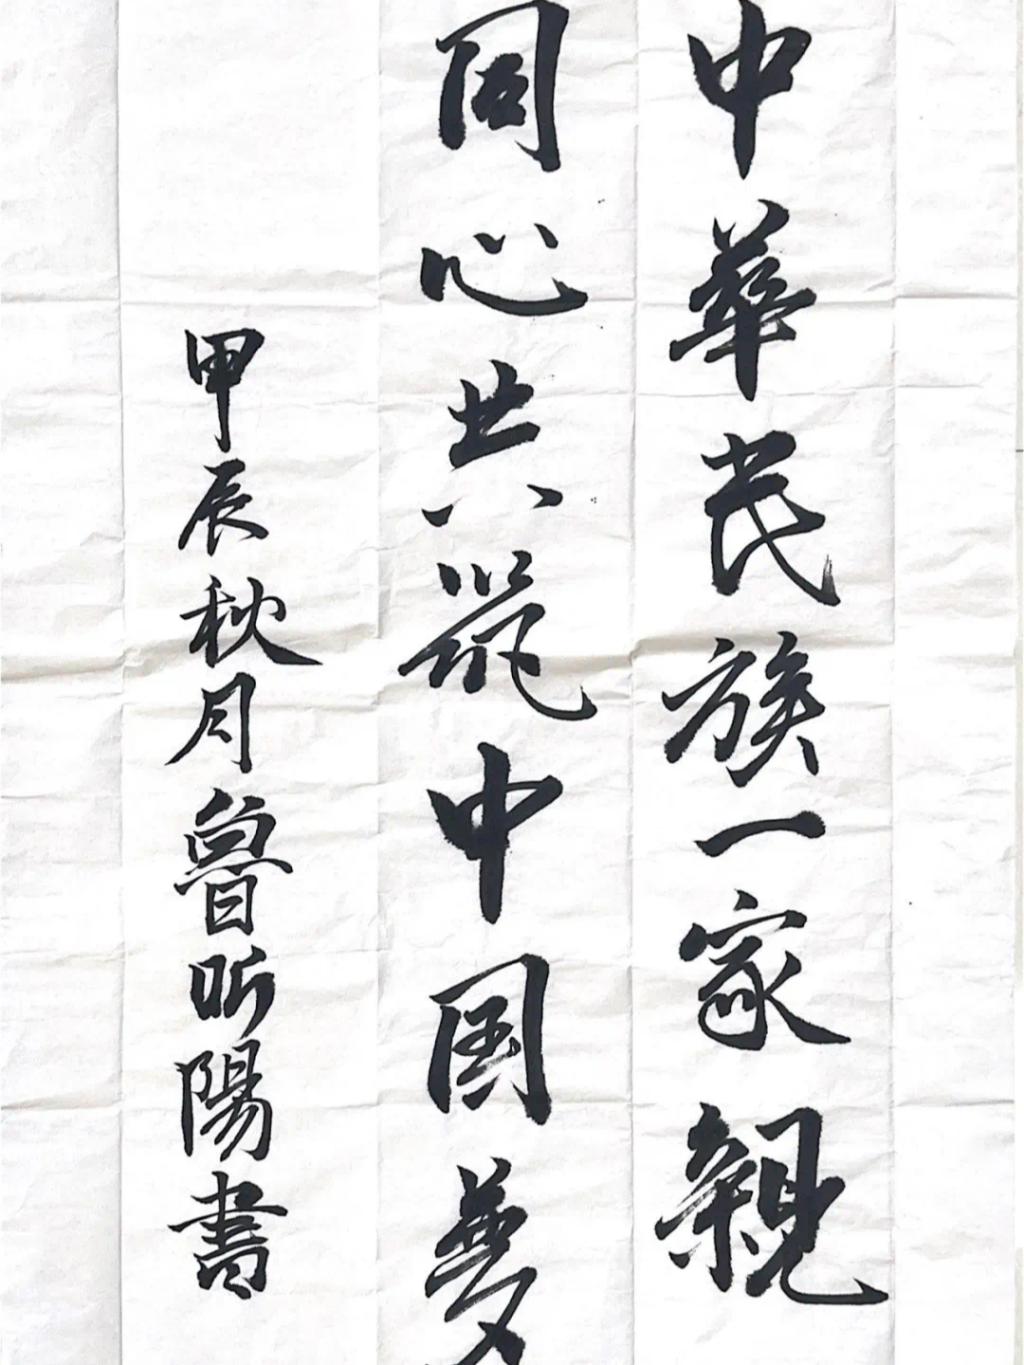 中華民族一家親
同心共筑中国夢
甲辰秋月魯昕陽書